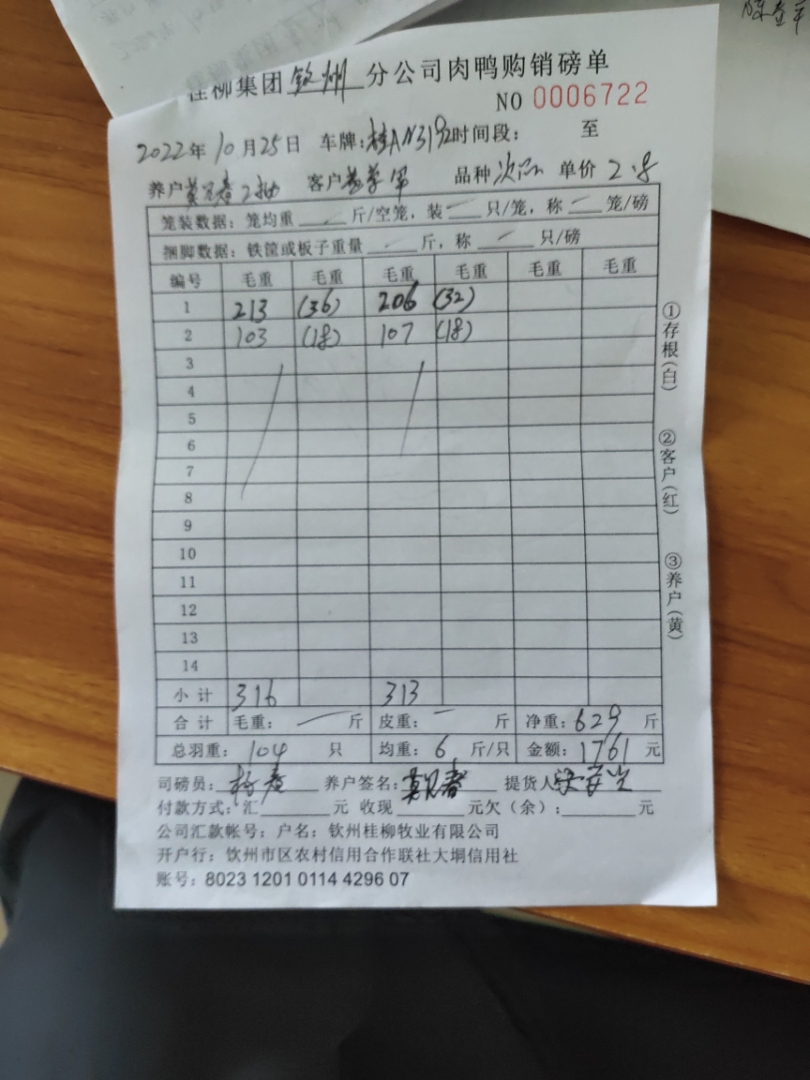 桂柳集团 钦州 分公司肉鸭购销磅单
NO 0006722
2022年 10月25日 车牌:桂AN3192 时间段: 至
养户 莫兄春 客户 品种 次品 单价 2.8
笼装数据: 笼均重 斤/空笼, 装 只/笼, 称 笼/磅
捆脚数据: 铁筐或板子重量 斤, 称 只/磅
编号 毛重 毛重 毛重 毛重 毛重 毛重
1 213 (36) 206 (32)
2 103 (18) 107 (18)
3
4
5
6
7
8
9
10
11
12
13
14
小计 316 313
合计 毛重: 一 斤 皮重: 一 斤 净重: 629 斤
总羽重: 104 只 均重: 6 斤/只 金额: 1761 元
司磅员: 养户签名: 莫兄春 提货人
付款方式: 汇 元 收现 元欠(余): 元
公司汇款帐号: 户名: 钦州桂柳牧业有限公司
开户行: 钦州市区农村信用合作联社大垌信用社
账号: 8023 1201 0114 4296 07
①存根(白)
②客户(红)
③养户(黄)